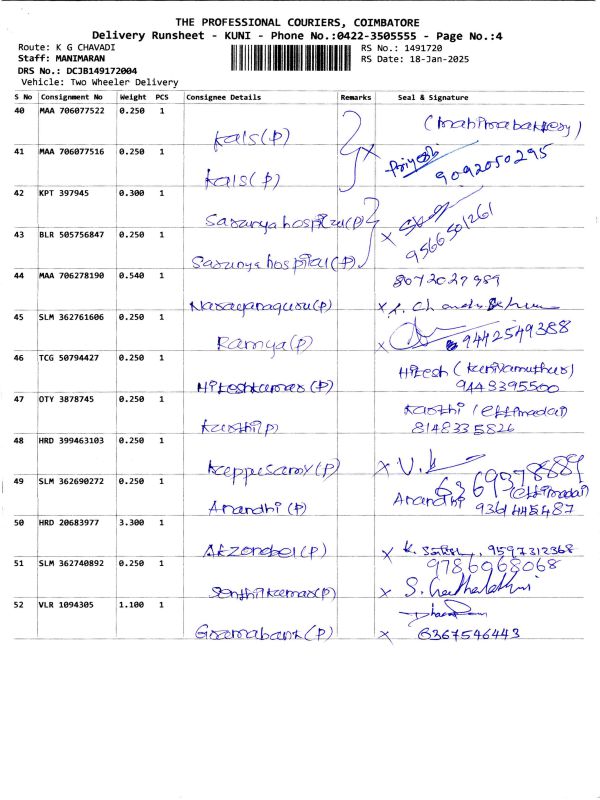 THE PROFESSIONAL COURIERS, COIMBATORE
Delivery Runsheet - KUNI - Phone No.:0422-3505555 - Page No.:4
Route: K G CHAVADI RS No.: 1491720
Staff: MANIMARAN RS Date: 18-Jan-2025
DRS No.: DCJB149172004
Vehicle: Two Wheeler Delivery
S No Consignment No Weight PCS Consignee Details Remarks Seal & Signature
40 MAA 706077522 0.250 1
Kals(P)
41 MAA 706077516 0.250 1
9092050295
Kals(P)
42 KPT 397945 0.300 1
Saranya hospital(P)
9566501261
43 BLR 505756847 0.250 1
Saranya hospital(P)
44 MAA 706278190 0.540 1
8072027989
Narayanaguru(P)
45 SLM 362761606 0.250 1
Ramya(P) 9442549388
46 TCG 50794427 0.250 1
Hitesh
Hiteshkumar(P) 9448395500
47 OTY 3878745 0.250 1
Karthi (Ettimadai)
Karthi(P) 8148335826
48 HRD 399463103 0.250 1
Kuppusamy(P)
6369378889
49 SLM 362690272 0.250 1
Anandhi (Ettimadai)
Anandhi (P)
50 HRD 20683977 3.300 1
Akzonobel(P) 9597312368
51 SLM 362740892 0.250 1
9786068068
Senthilkumar(P)
52 VLR 1094305 1.100 1
Gramabank(P) 6367546443